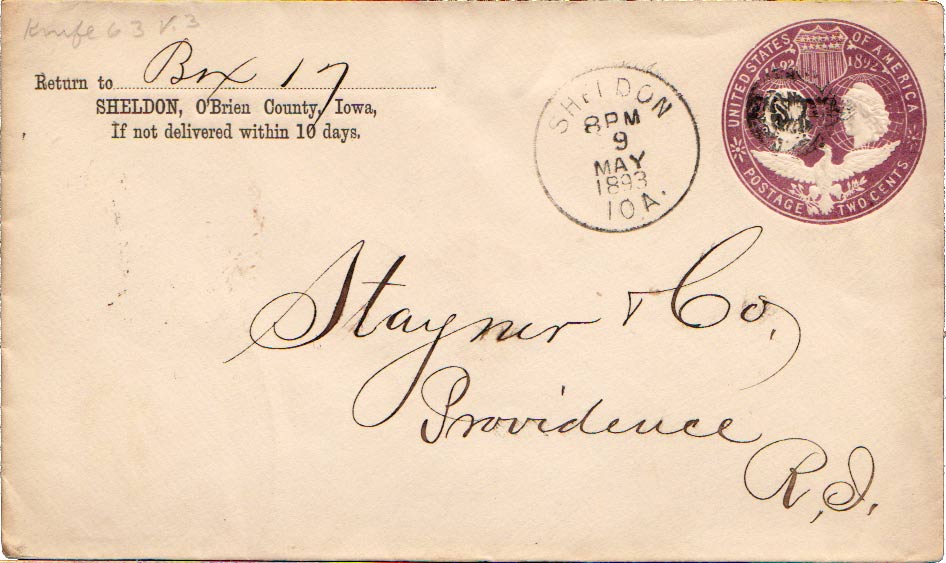 Knife 63 v.3
Return to Box 17
SHELDON, O'Brien County, Iowa,
If not delivered within 10 days.
SHELDON
8 PM
9
MAY
1893
IOA.
UNITED STATES OF AMERICA
1492 1892
POSTAGE TWO CENTS
Stayner & Co,
Providence
R,I.